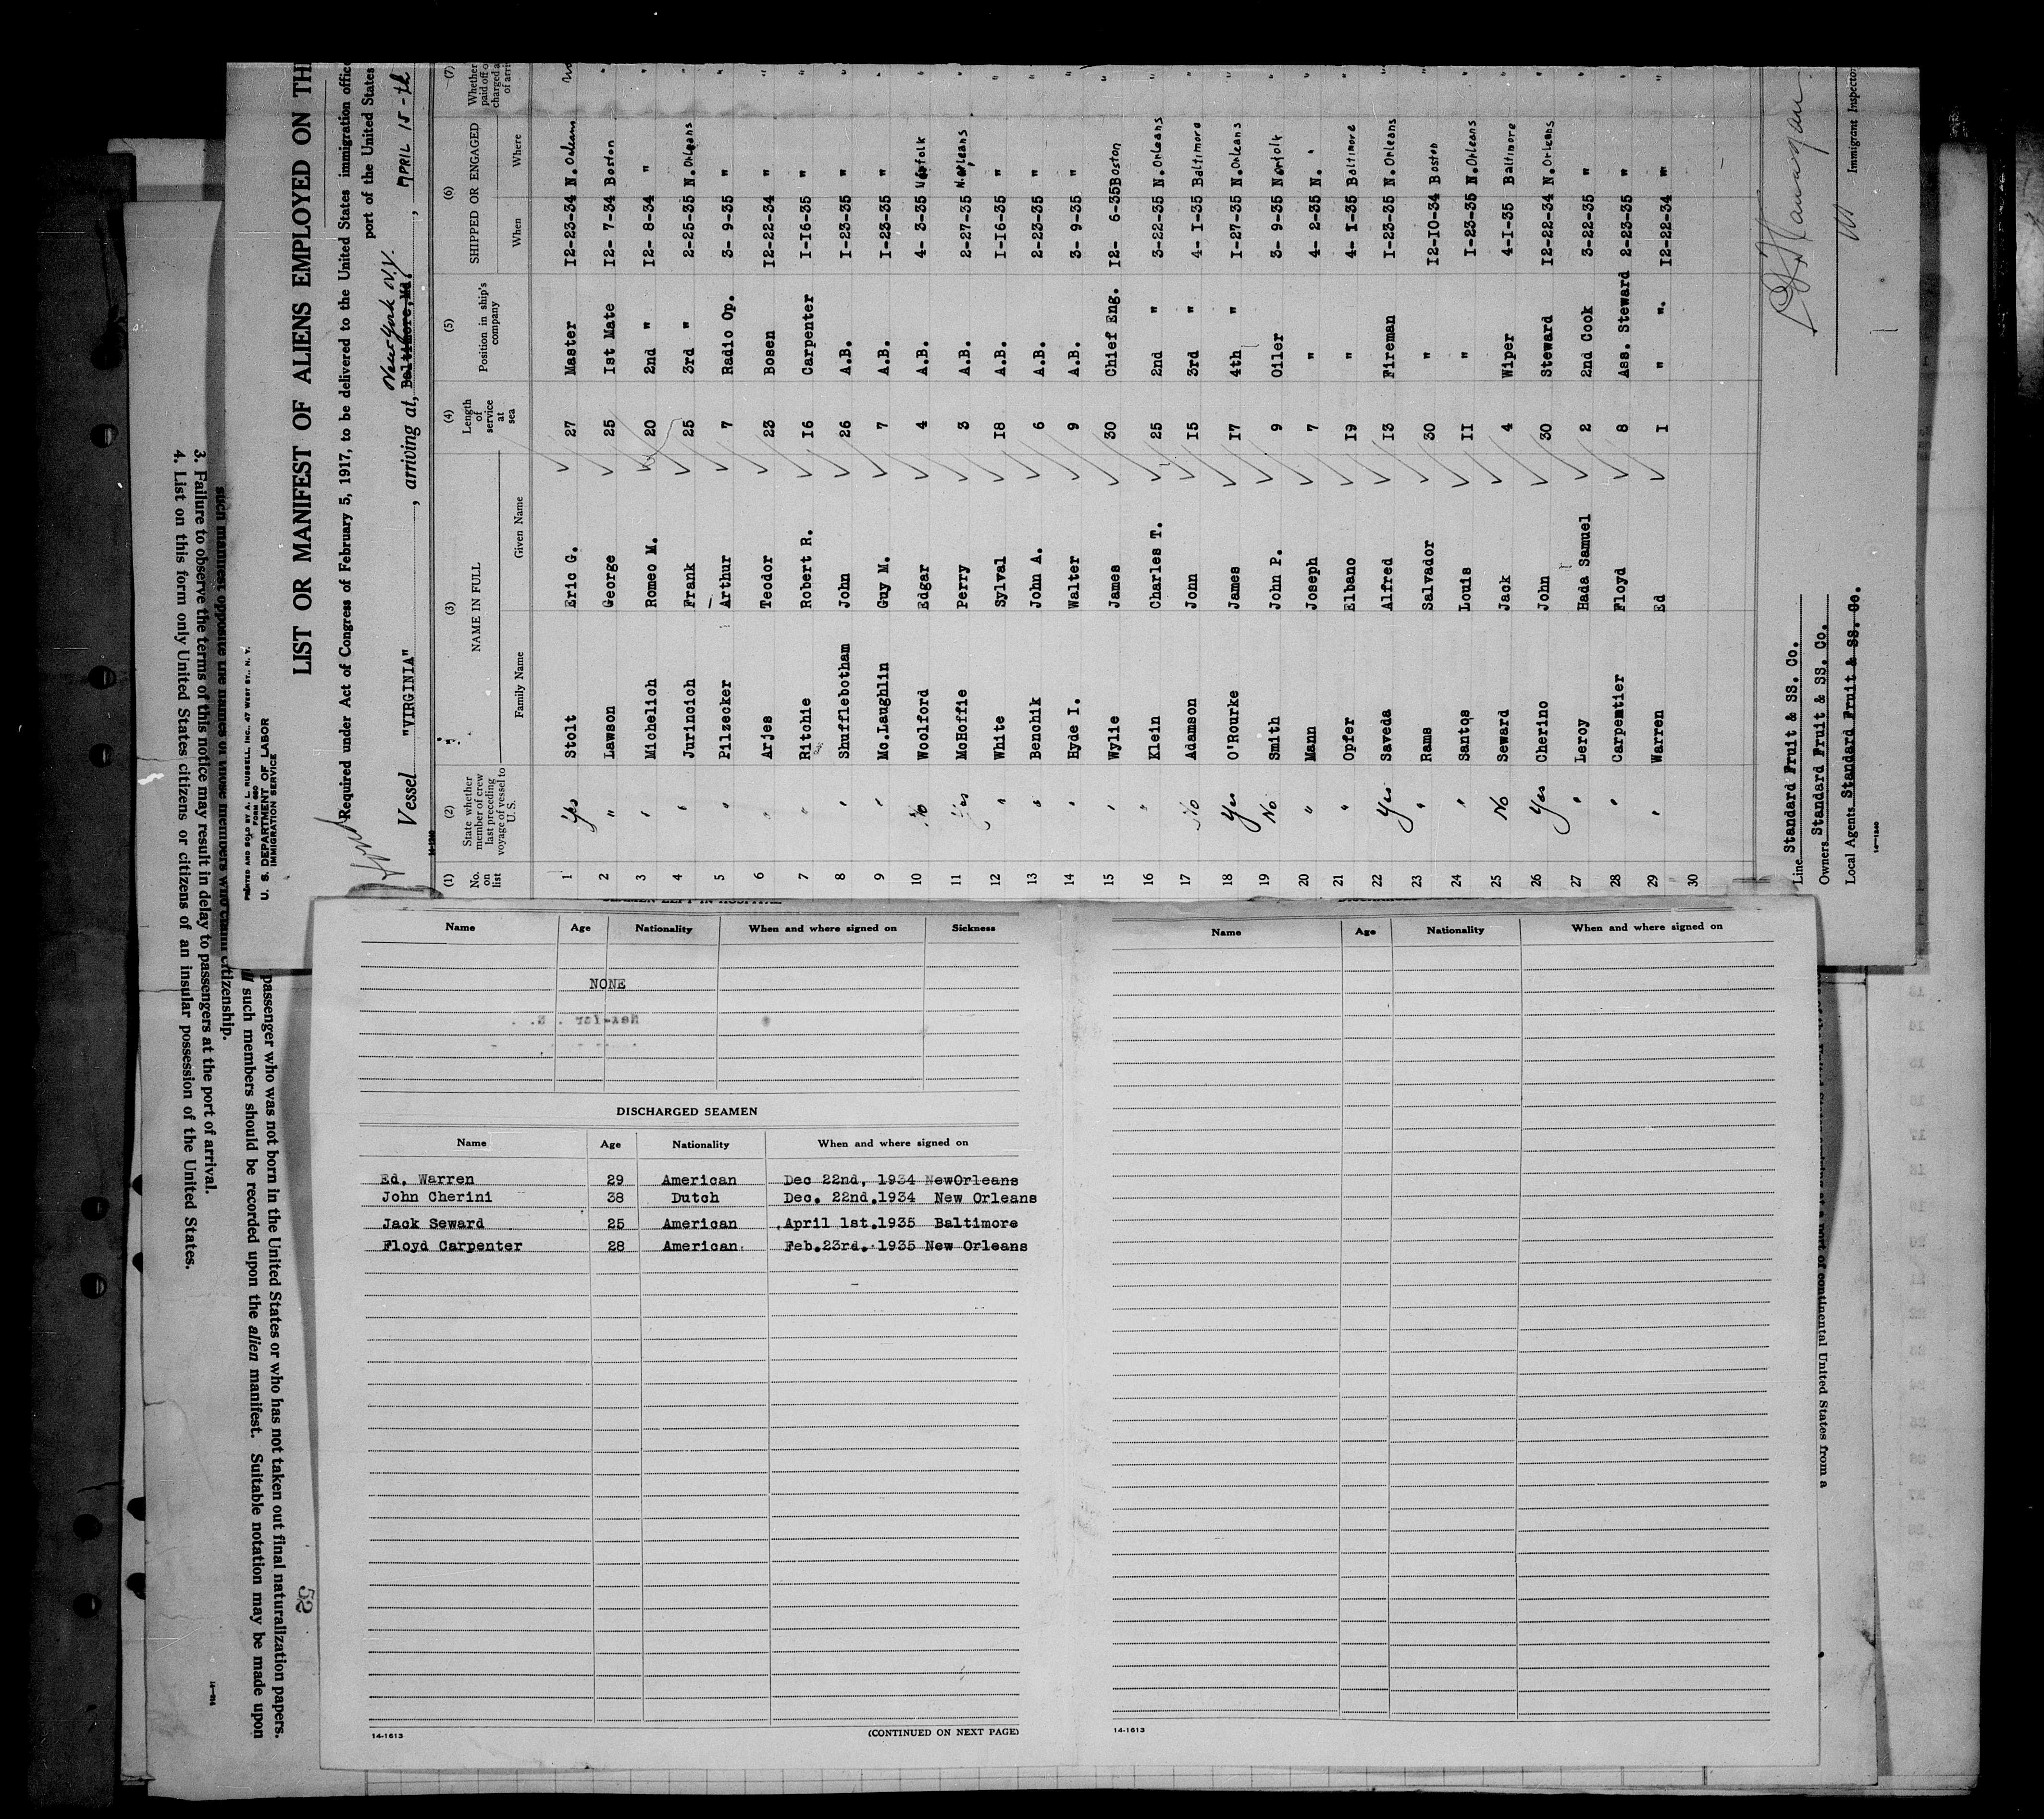 such manifest opposite the names of those members who claim citizenship.
3. Failure to observe the terms of this notice may result in delay to passengers at the port of arrival.
4. List on this form only United States citizens or citizens of an insular possession of the United States.
passenger who was not born in the United States or who has not taken out final naturalization papers.
such members should be recorded upon the alien manifest. Suitable notation may be made upon
52
U. S. DEPARTMENT OF LABOR
IMMIGRATION SERVICE
LIST OR MANIFEST OF ALIENS EMPLOYED ON TH
Required under Act of Congress of February 5, 1917, to be delivered to the United States immigration office
port of the United States
Vessel "VIRGINIA", arriving at, Baltimore, Md. New-York N.Y., APRIL 15-th
(1) (2) (3) (4) (5) (6) (7)
No. on list
State whether member of crew last preceding voyage of vessel to U. S.
NAME IN FULL
Family Name Given Name
Length of service at sea
Position in ship's company
SHIPPED OR ENGAGED
When Where
Whether paid off o
charged a
of arri
1 Yes Stolt Eric G. 27 Master 12-23-34 N. Orleans no
2 " Lawson George 25 1st Mate 12- 7-34 Boston "
3 " Michelich Romeo M. 20 2nd " 12- 8-34 " "
4 " Jurincich Frank 25 3rd " 2-25-35 N. Orleans "
5 " Pilzecker Arthur 7 Radio Op. 3- 9-35 " "
6 " Arjes Teodor 23 Bosen 12-22-34 " "
7 " Ritchie Robert R. 16 Carpenter 1-16-35 " "
8 " Shufflebotham John 26 A.B. 1-23-35 " "
9 " Mc.Laughlin Guy M. 7 A.B. 1-23-35 " "
10 No Woolford Edgar 4 A.B. 4- 3-35 Norfolk "
11 Yes McHoffie Perry 3 A.B. 2-27-35 N. Orleans "
12 " White Sylval 18 A.B. 1-16-35 " "
13 " Benchik John A. 6 A.B. 2-23-35 " "
14 " Hyde I. Walter 9 A.B. 3- 9-35 " "
15 " Wylie James 30 Chief Eng. 12- 6-35 Boston "
16 " Klein Charles T. 25 2nd " 3-22-35 N. Orleans "
17 No Adamson John 15 3rd " 4- 1-35 Baltimore "
18 Yes O'Rourke James 17 4th " 1-27-35 N. Orleans "
19 No Smith John P. 9 Oiler 3- 9-35 Norfolk "
20 " Mann Joseph 7 " 4- 2-35 N. " "
21 " Opfer Elbano 19 " 4- 1-35 Baltimore "
22 Yes Saveda Alfred 13 Fireman 1-23-35 N. Orleans "
23 " Rams Salvador 30 " 12-10-34 Boston "
24 " Santos Louis 11 " 1-23-35 N. Orleans "
25 No Seward Jack 4 Wiper 4-1-35 Baltimore "
26 Yes Cherino John 30 Steward 12-22-34 N. Orleans "
27 " Leroy Hada Samuel 2 2nd Cook 3-22-35 " "
28 " Carpentier Floyd 8 Ass. Steward 2-23-35 " "
29 " Warren Ed 1 " ". 12-22-34 " "
30
Line Standard Fruit & SS. Co.
Owners Standard Fruit & SS. Co.
Local Agents Standard Fruit & SS. Co.
Immigrant Inspector
SEAMEN LEFT IN HOSPITAL
Name Age Nationality When and where signed on Sickness
NONE
DISCHARGED SEAMEN
Name Age Nationality When and where signed on
Ed. Warren 29 American Dec 22nd, 1934 NewOrleans
John Cherini 38 Dutch Dec. 22nd.1934 New Orleans
Jack Seward 25 American April 1st.1935 Baltimore
Floyd Carpenter 28 American Feb.23rd. 1935 New Orleans
14-1613
(CONTINUED ON NEXT PAGE)
Name Age Nationality When and where signed on
14-1613
at a port of continental United States from a